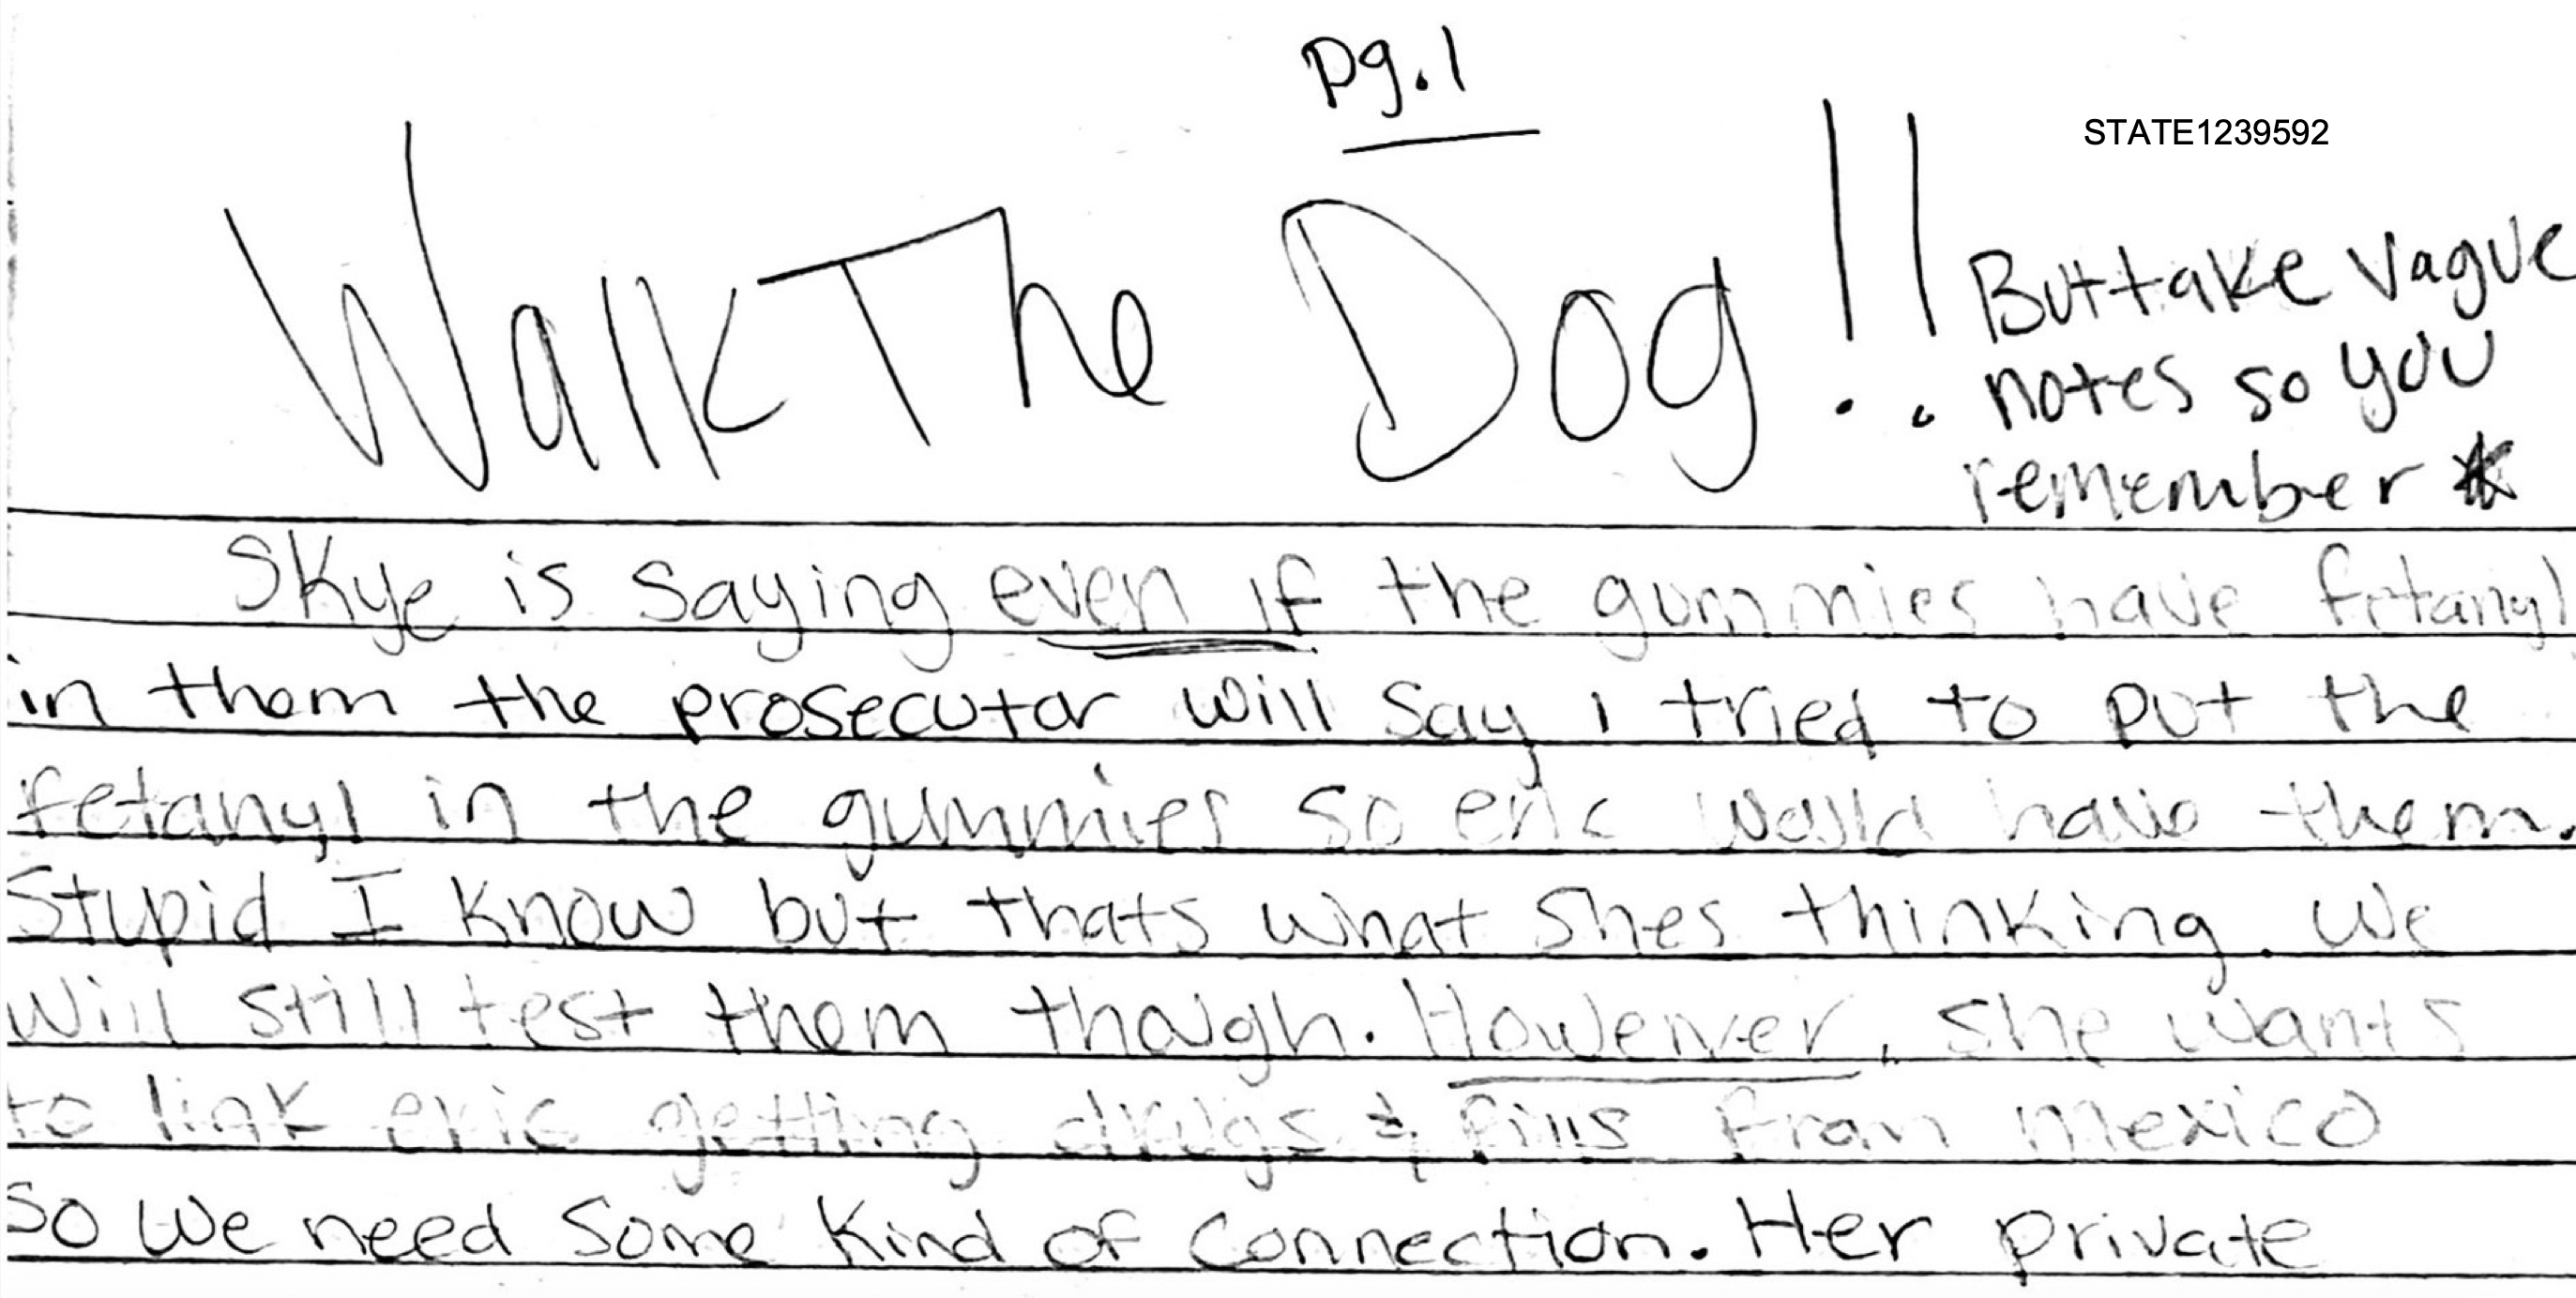 pg.1
STATE1239592
Walk The Dog!!
But take vague
notes so you
remember *
Skye is saying even if the gummies have fetanyl
in them the prosecutor will say i tried to put the
fetanyl in the gummies so eric would have them.
Stupid I know but thats what shes thinking. We
will still test them though. However, she wants
to link eric getting drugs & pills from mexico
so we need some kind of connection. Her private